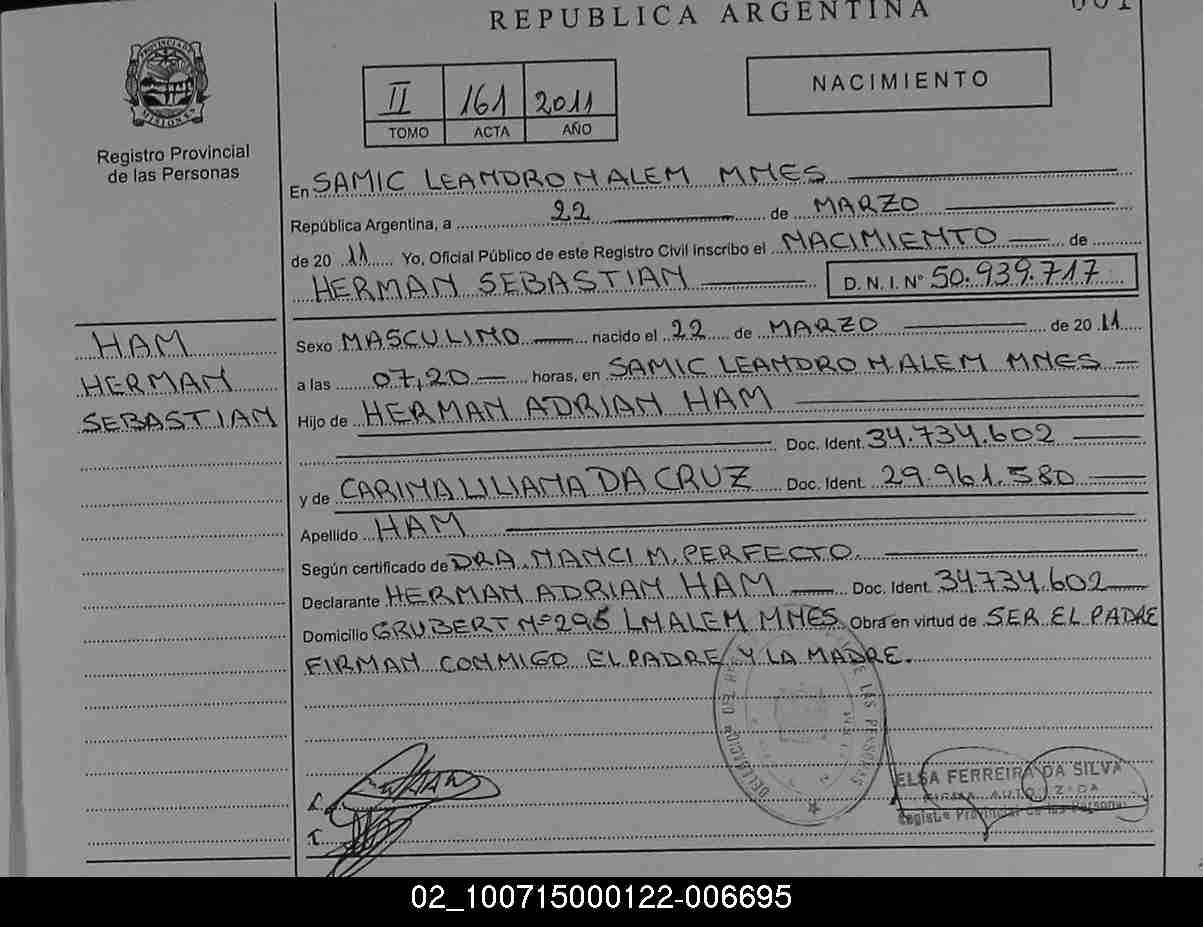 REPUBLICA ARGENTINA
001
PROVINCIA DE
MISIONES
Registro Provincial
de las Personas
II 161 2011
TOMO ACTA AÑO
NACIMIENTO
En SAMIC LEANDRO N ALEM MNES
República Argentina, a 22 de MARZO
de 20 11 Yo, Oficial Público de este Registro Civil inscribo el NACIMIENTO de
HERMAN SEBASTIAN D. N. I. N° 50.939.717
HAM
HERMAN
SEBASTIAN
Sexo MASCULINO nacido el 22 de MARZO de 20 11
a las 07,20 horas, en SAMIC LEANDRO N. ALEM MNES
Hijo de HERMAN ADRIAN HAM
Doc. Ident. 34.734.602
y de CARINA LILIANA DA CRUZ Doc. Ident. 29.961.580
Apellido HAM
Según certificado de DRA. NANCI M. PERFECTO.
Declarante HERMAN ADRIAN HAM Doc. Ident. 34.734.602
Domicilio GRUBERT N° 296 LNALEM MNES. Obra en virtud de SER EL PADRE
FIRMAN CONMIGO EL PADRE Y LA MADRE.
ELSA FERREIRA DA SILVA
FIRMA AUTORIZADA
Registro Provincial de las Personas
02_100715000122-006695